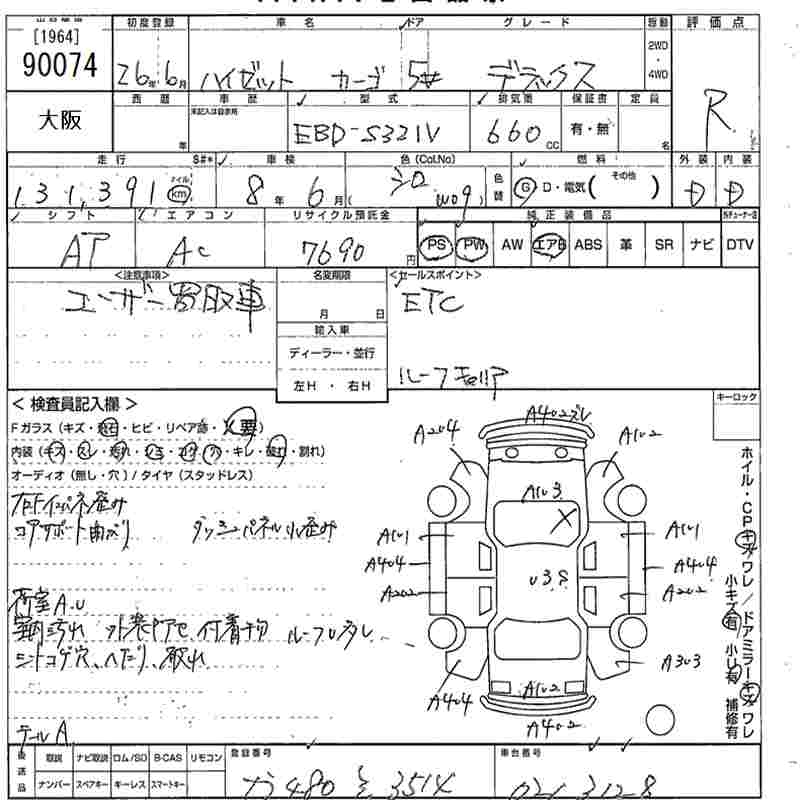 [1964]
90074
初度登録 車名 ドア グレード 駆動 評価点
26年6月 ハイゼット カーゴ 5# デラックス 2WD ・ 4WD
R
大阪
西暦 車歴 型式 排気量 保証書 定員
年 未記入は自家用 EBD-S321V 660cc 有・無 名
走行 S#* 車検 色(Col.No) 燃料 外装 内装
131,391 マイル km 8年6月( シロ W09 ) 色替 G・D・電気( その他 ) D D
シフト エアコン リサイクル預託金 純正装備品
AT AC 7690円 PS PW AW エアB ABS 革 SR ナビ DTV
<注意事項> 名変期限 <セールスポイント>
ユーザー買取車 月 日 ETC
輸入車
ディーラー・並行
左H ・ 右H ルーフキャリア
< 検査員記入欄 > キーロック
Fガラス(キズ・飛石・ヒビ・リペア跡・X要)
内装(キズ・スレ・汚れ・シミ・コゲ・穴・キレ・破れ・割れ)
オーディオ(無し・穴)/タイヤ(スタッドレス)
コアサポート曲がり ダッシュパネル小歪み
荷室A.U
室内汚れ 付着物
シートコゲ穴、ヘたり、破れ
テールA
A402
A204 A102
A103 X
A101 A101
A404 A404
A202 U3S A202
A303
A404 A102
A402
ホイル・CPキズワレ/ドアミラーキズワレ
小キズ有 小U有 補修有
後送品 取説 ナビ取説 ロム/SD B-CAS リモコン 登録番号 車台番号
ナンバー スペアキー キーレス スマートキー 480 3514 0213128